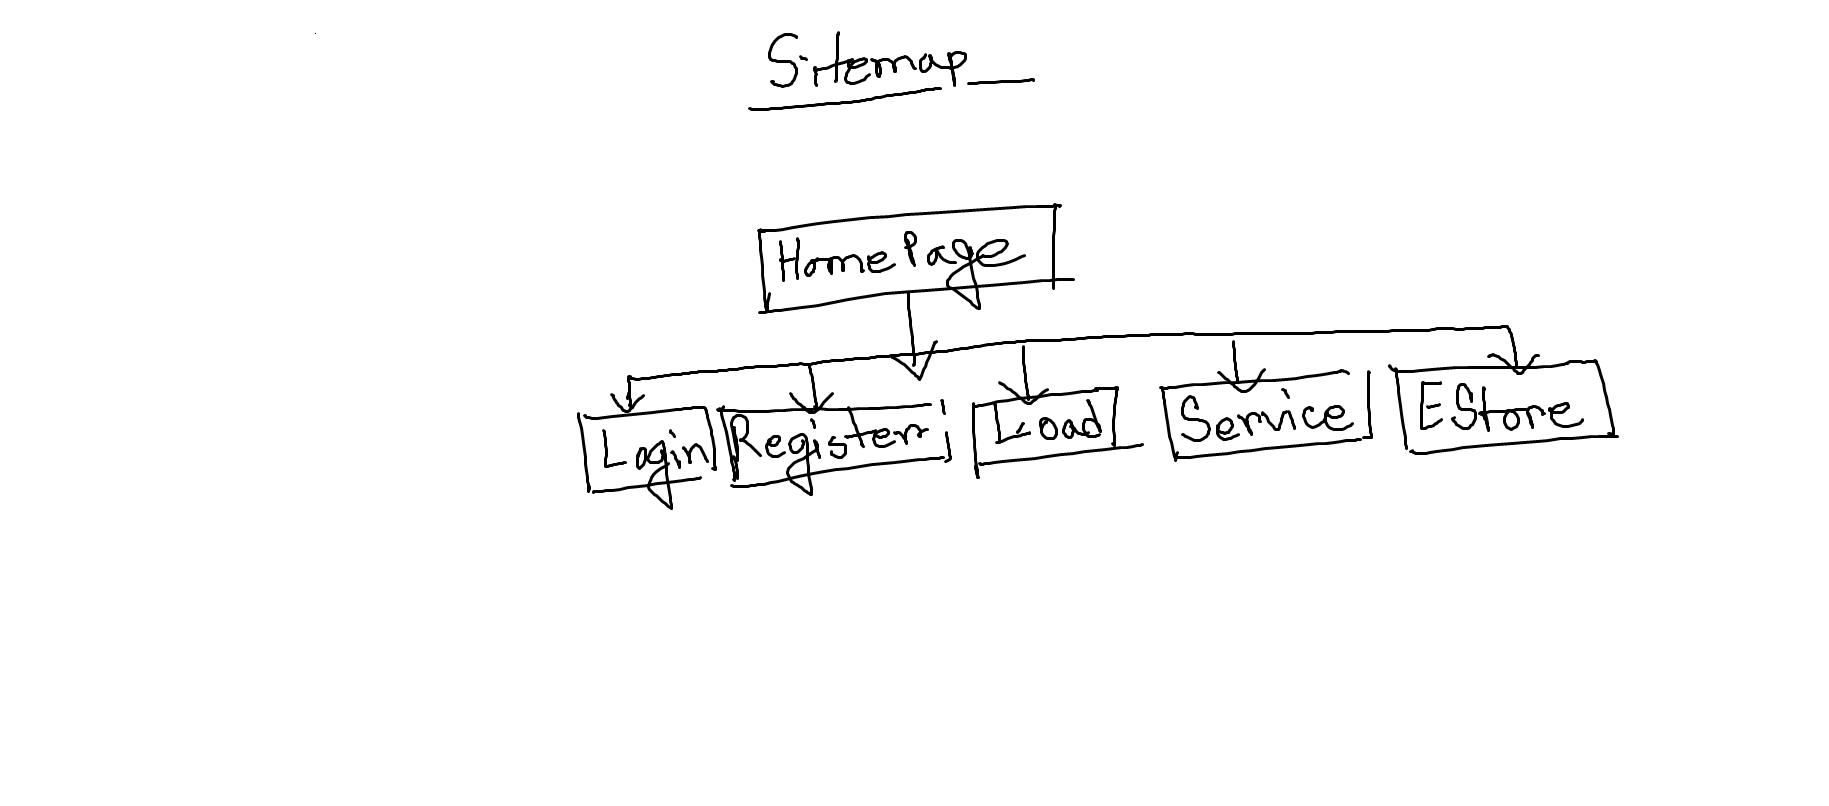 Sitemap
HomePage
Login
Register
Load
Service
EStore